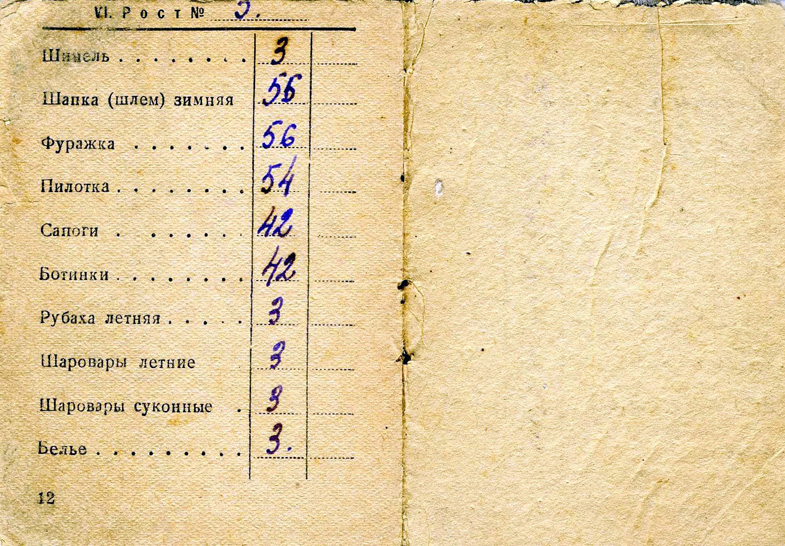 VI. Рост № 3.
Шинель . . . . . . . . 3
Шапка (шлем) зимняя 56
Фуражка . . . . . . 56
Пилотка . . . . . . . . 54
Сапоги . . . . . . . 42
Ботинки . . . . . . . . 42
Рубаха летняя . . . . . 3
Шаровары летние 3
Шаровары суконные . 3
Белье . . . . . . . . . 3.
12